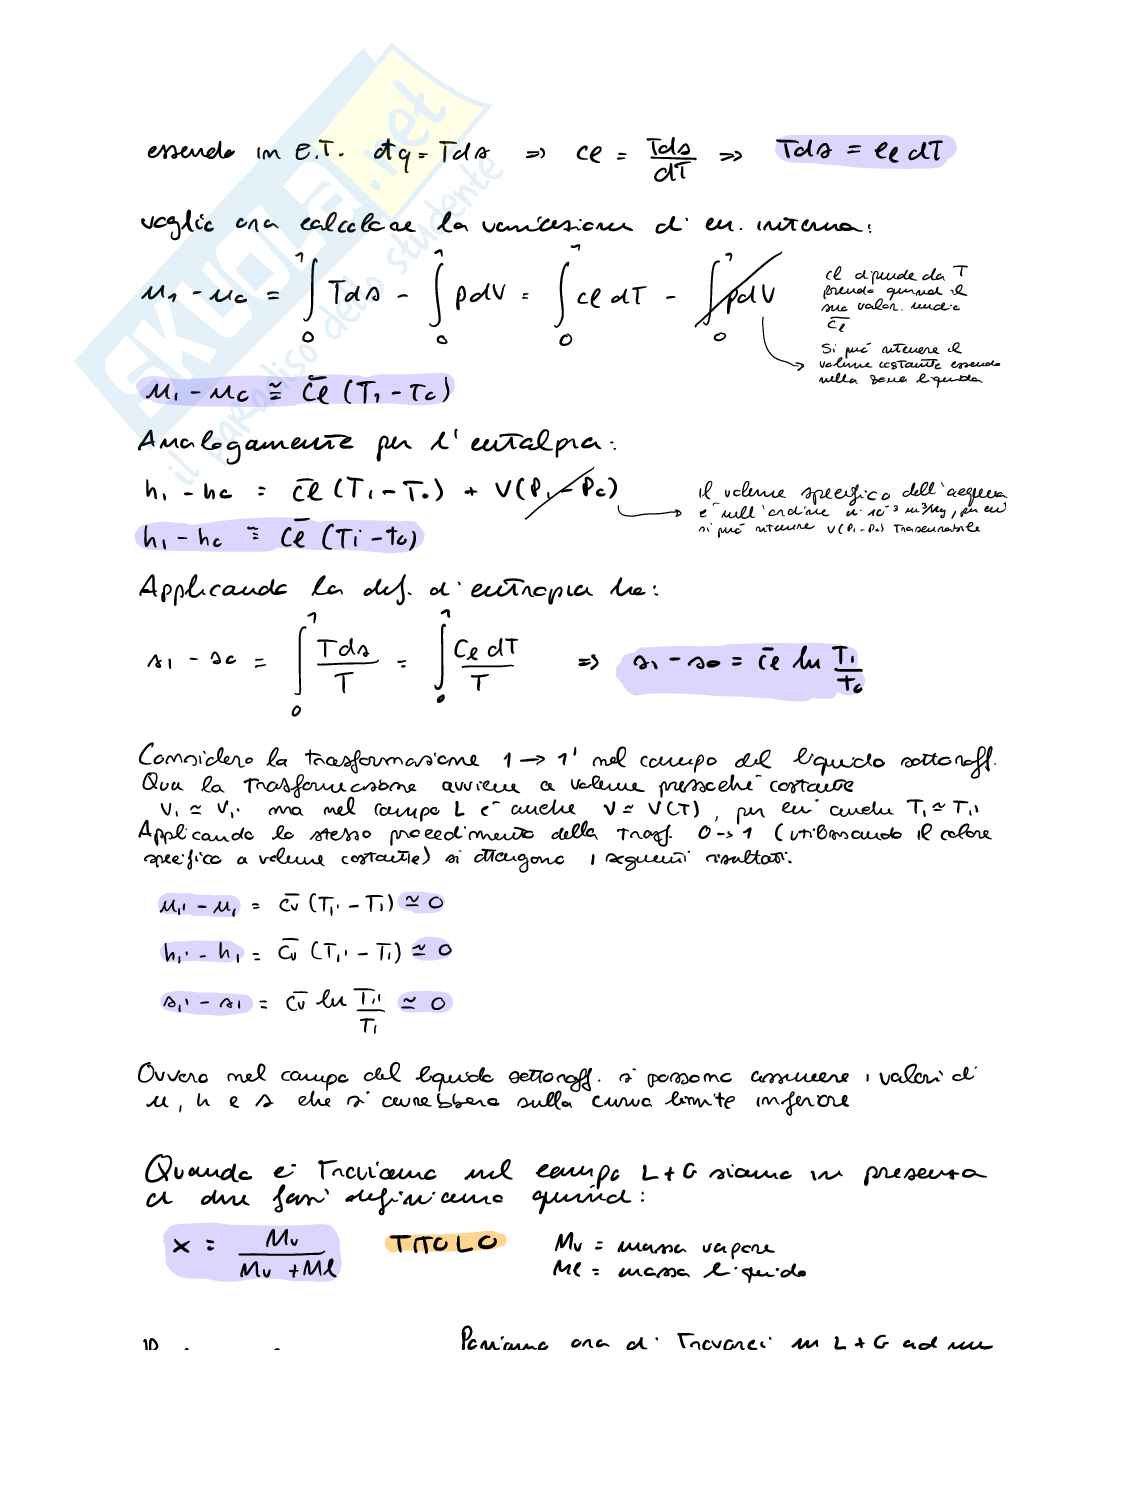 SKUOLA.net
il paradiso dello studente
essendo in E.T. đq = Tds => cl = Tds/dT => Tds = cl dT
voglio ora calcolare la variazione di en. interna:
u1 - u0 = ∫₀¹ Tds - ∫₀¹ pdV = ∫₀¹ cl dT - ∫₀¹ pdV
cl dipende da T
prendo quindi il
suo valor. medio
c̄l
Si può ritenere il
volume costante essendo
nella zona liquida
u1 - u0 ≅ c̄l (T1 - T0)
Analogamente per l'entalpia:
h1 - h0 = c̄l (T1 - T0) + V(P1 - P0)
il volume specifico dell'acqua
è nell'ordine di 10⁻³ m³/kg, per cui
si può ritenere V(P1-P0) Trascurabile
h1 - h0 ≅ c̄l (T1 - t0)
Applicando la def. d'entropia ho:
s1 - s0 = ∫₀¹ Tds/T = ∫₀¹ Cl dT/T => s1 - s0 = c̄l ln T1/t0
Considero la trasformazione 1 → 1' nel campo del liquido sottoraff.
Qua la trasformazione avviene a volume pressoché costante
V1 ≃ V1' ma nel campo L è anche V = V(T), per cui anche T1 ≃ T1'
Applicando lo stesso procedimento della trasf. 0→1 (utilizzando il calore
specifico a volume costante) si ottengono i seguenti risultati.
u1' - u1 = c̄v (T1' - T1) ≃ 0
h1' - h1 = c̄v (T1' - T1) ≃ 0
s1' - s1 = c̄v ln T1'/T1 ≃ 0
Ovvero nel campo del liquido sottoraff. si possono assumere i valori di
u, h e s che si avrebbero sulla curva limite inferiore
Quando ci troviamo nel campo L+G siamo in presenza
di due fasi definiamo quindi:
x = Mv/Mv + Ml TITOLO
Mv = massa vapore
Ml = massa liquido
Poniamo ora di Trovarci in L+G ad un